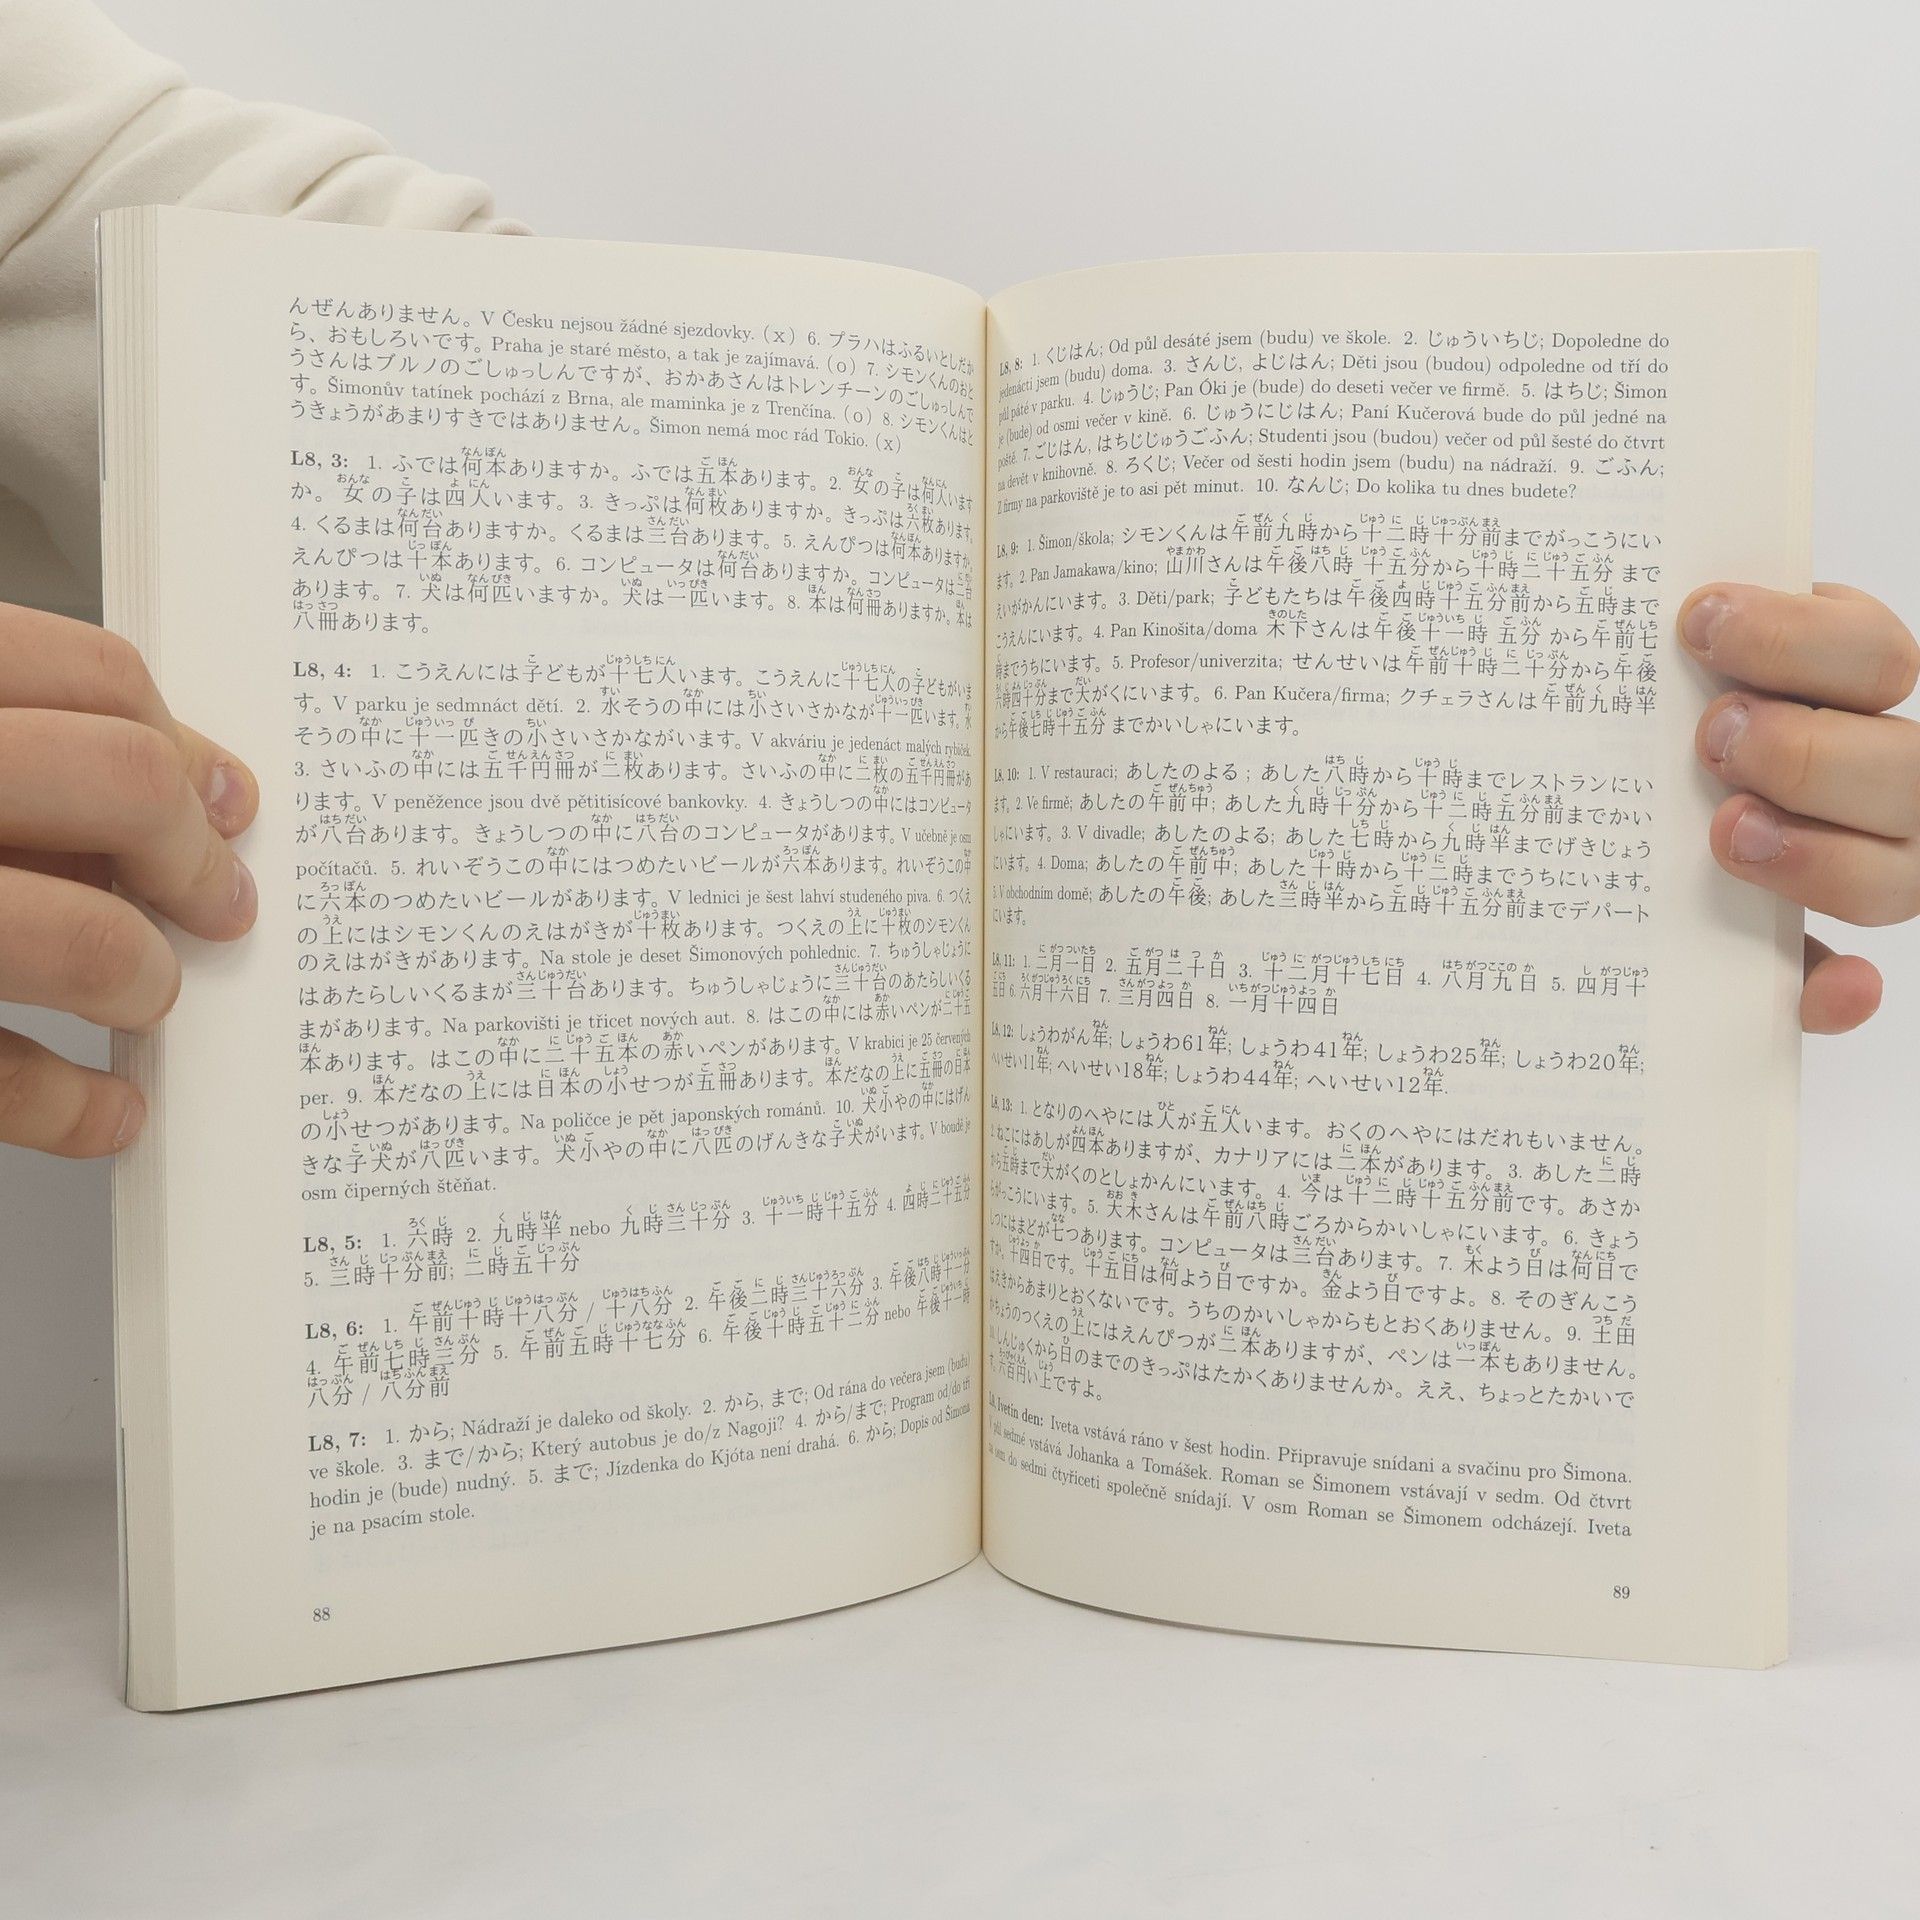 んぜんありません。V Česku nejsou žádné sjezdovky. (x) 6. プラハはふるいとしだか
ら、おもしろいです。Praha je staré město, a tak je zajímavá. (o) 7. シモンくんのおと
うさんはブルノのごしゅっしんですが、おかあさんはトレンチーンのごしゅっしんで
す。Šimonův tatínek pochází z Brna, ale maminka je z Trenčína. (o) 8. シモンくんはと
うきょうがあまりすきではありません。Šimon nemá moc rád Tokio. (x)
L8, 3: 1. ふでは何本ありますか。ふでは五本あります。2. 女の子は何人います
か。女の子は四人います。3. きっぷは何枚ありますか。きっぷは六枚あります。
4. くるまは何台ありますか。くるまは三台あります。5. えんぴつは何本ありますか。
えんぴつは十本あります。6. コンピュータは何台ありますか。コンピュータは二台
あります。7. 犬は何匹いますか。犬は一匹います。8. 本は何冊ありますか。本は
八冊あります。
L8, 4: 1. こうえんには子どもが十七人います。こうえんに十七人の子どもがいま
す。V parku je sedmnáct dětí. 2. 水そうの中には小さいさかなが十一匹います。水
そうの中に十一匹きの小さいさかながいます。V akváriu je jedenáct malých rybiček.
3. さいふの中には五千円冊が二枚あります。さいふの中に二枚の五千円冊があ
ります。V peněžence jsou dvě pětitisícové bankovky. 4. きょうしつの中にはコンピュータ
が八台あります。きょうしつの中に八台のコンピュータがあります。V učebně je osm
počítačů. 5. れいぞうこの中にはつめたいビールが六本あります。れいぞうこの中
に六本のつめたいビールがあります。V lednici je šest lahví studeného piva. 6. つくえ
の上にはシモンくんのえはがきが十枚あります。つくえの上に十枚のシモンくん
のえはがきがあります。Na stole je deset Šimonových pohlednic. 7. ちゅうしゃじょうに
はあたらしいくるまが三十台あります。ちゅうしゃじょうに三十台のあたらしいくる
まがあります。Na parkovišti je třicet nových aut. 8. はこの中には赤いペンが二十五
本あります。はこの中に二十五本の赤いペンがあります。V krabici je 25 červených
per. 9. 本だなの上には日本の小せつが五冊あります。本だなの上に五冊の日本
の小せつがあります。Na poličce je pět japonských románů. 10. 犬小やの中にはげん
きな子犬が八匹います。犬小やの中に八匹のげんきな子犬がいます。V boudě je
osm čiperných štěňat.
L8, 5: 1. 六時 2. 九時半 nebo 九時三十分 3. 十一時十五分 4. 四時二十五分
5. 三時十分前; 二時五十分
L8, 6: 1. 午前十時十八分 / 十八分 2. 午後二時三十六分 3. 午後八時十一分
4. 午前七時三分 5. 午前五時十七分 6. 午後十時五十二分 nebo 午後十一時
八分 / 八分前
L8, 7: 1. から; Nádraží je daleko od školy. 2. から, まで; Od rána do večera jsem (budu)
ve škole. 3. まで/から; Který autobus je do/z Nagoji? 4. から/まで; Program od/do tří
hodin je (bude) nudný. 5. まで; Jízdenka do Kjóta není drahá. 6. から; Dopis od Šimona
je na psacím stole.
88
L8, 8: 1. くじはん; Od půl desáté jsem (budu) ve škole. 2. じゅういちじ; Dopoledne do
jedenácti jsem (budu) doma. 3. さんじ, よじはん; Děti jsou (budou) odpoledne od tří do
půl páté v parku. 4. じゅうじ; Pan Óki je (bude) do deseti večer ve firmě. 5. はちじ; Šimon
je (bude) od osmi večer v kině. 6. じゅうにじはん; Paní Kučerová bude do půl jedné na
poště. 7. ごじはん, はちじじゅうごふん; Studenti jsou (budou) večer od půl šesté do čtvrt
na devět v knihovně. 8. ろくじ; Večer od šesti hodin jsem (budu) na nádraží. 9. ごふん;
Z firmy na parkoviště je to asi pět minut. 10. なんじ; Do kolika tu dnes budete?
L8, 9: 1. Šimon/škola; シモンくんは午前九時から十二時十分前までがっこうにい
ます。2. Pan Jamakawa/kino; 山川さんは午後八時 十五分から十時二十五分 まで
えいがかんにいます。3. Děti/park; 子どもたちは午後四時十五分前から五時まで
こうえんにいます。4. Pan Kinošita/doma 木下さんは午後十一時 五分 から午前七
時までうちにいます。5. Profesor/univerzita; せんせいは午前十時二十分から午後
六時四十分まで大がくにいます。6. Pan Kučera/firma; クチェラさんは午前九時半
から午後七時十五分 までかいしゃにいます。
L8, 10: 1. V restauraci; あしたのよる ; あした八時から十時までレストランにい
ます。2. Ve firmě; あしたの午前中; あした九時十分から十二時五分前までかい
しゃにいます。3. V divadle; あしたのよる; あした七時から九時半までげきじょう
にいます。4. Doma; あしたの午前中; あした十時から十二時までうちにいます。
5. V obchodním domě; あしたの午後; あした三時半から五時十五分前までデパート
にいます。
L8, 11: 1. 二月一日 2. 五月二十日 3. 十二月十七日 4. 八月九日 5. 四月十
五日 6. 六月十六日 7. 三月四日 8. 一月十四日
L8, 12: しょうわがん年; しょうわ61年; しょうわ41年; しょうわ25年; しょうわ20年;
へいせい11年; へいせい18年; しょうわ44年; へいせい12年.
L8, 13: 1. となりのへやには人が五人います。おくのへやにはだれもいません。
2. ねこにはあしが四本ありますが、カナリアには二本があります。3. あした二時
から五時まで大がくのとしょかんにいます。4. 今は十二時十五分前です。あさか
らがっこうにいます。5. 大木さんは午前八時ごろからかいしゃにいます。6. きょう
しつにはまどが七つあります。コンピュータは三台あります。7. 木よう日は何日で
すか。十四日です。十五日は何よう日ですか。金よう日ですよ。8. そのぎんこう
はえきからあまりとおくないです。うちのかいしゃからもとおくありません。9. 土田
かちょうのつくえの上にはえんぴつが二本ありますが、ペンは一本もありません。
10. しんじゅくから日のまでのきっぷはたかくありませんか。ええ、ちょっとたかいで
す。六百円い上ですよ。
L8, Ivetin den: Iveta vstává ráno v šest hodin. Připravuje snídani a svačinu pro Šimona.
V půl sedmé vstává Johanka a Tomášek. Roman se Šimonem vstávají v sedm. Od čtvrt
na osm do sedmi čtyřiceti společně snídají. V osm Roman se Šimonem odcházejí. Iveta
89